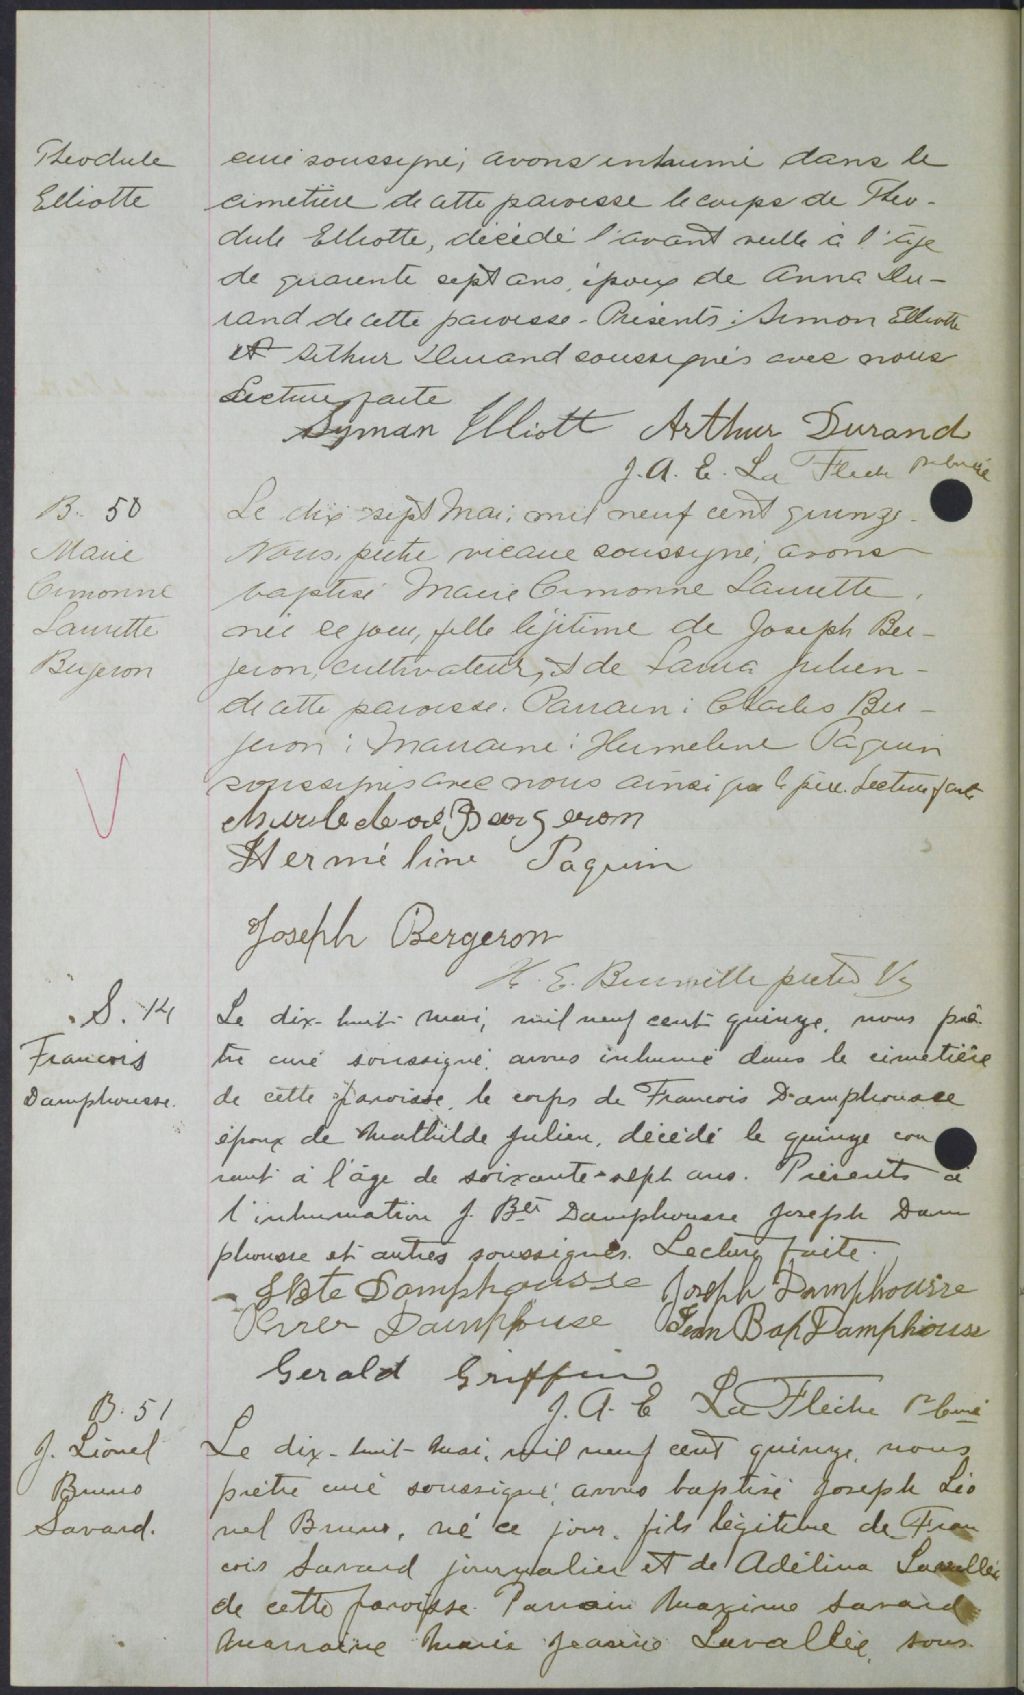 Theodule
Elliotte
curé soussigné, avons inhumé dans le
cimetière de cette paroisse le corps de Théo-
dule Elliotte, décédé l'avant veille à l'âge
de quarente sept ans, époux de Anna Du-
rand de cette paroisse. Présents: Simon Elliotte
et Arthur Durand soussignés avec nous
Lecture faite
Syman Elliott Arthur Durand
J. A. E. La Flèche Ptre curé
B. 50
Marie
Cimonne
Laurette
Bergeron
Le dix sept Mai, mil neuf cent quinze.
Nous, prêtre vicaire soussigné, avons
baptisé Marie Cimonne Laurette,
née ce jour, fille légitime de Joseph Ber-
geron, cultivateur, et de Laura Julien
de cette paroisse. Parrain: Charles Ber-
geron; Marraine: Hermeline Paquin
soussignés avec nous ainsi que le père. Lecture faite
Bergeron
Herméline Paquin
Joseph Bergeron
H. E. prêtre
S. 14
Francois
Damphousse.
Le dix-huit mai, mil neuf cent quinze, nous prê
tre curé soussigné, avons inhumé dans le cimetière
de cette paroisse, le corps de Francois Damphousse
époux de Mathilde Julien, décédé le quinze cou
rant à l'âge de soixante-sept ans. Présents à
l'inhumation J. Bte Damphousse Joseph Dam
phousse et autres soussignés. Lecture faite.
JBte Damphousse Joseph Damphousse
Pierre Damphouse Jean Bap Damphouse
Gerald Griffin
J. A. E La Flèche Ptre curé
B. 51
J. Lionel
Bruno
Savard.
Le dix-huit mai, mil neuf cent quinze, nous
prêtre curé soussigné, avons baptisé Joseph Lio
nel Bruno, né ce jour, fils légitime de Fran
cois Savard journalier et de Adélina Lavallée
de cette paroisse. Parrain Maxime Savard
Marraine Marie Jeanne Lavallée, sous